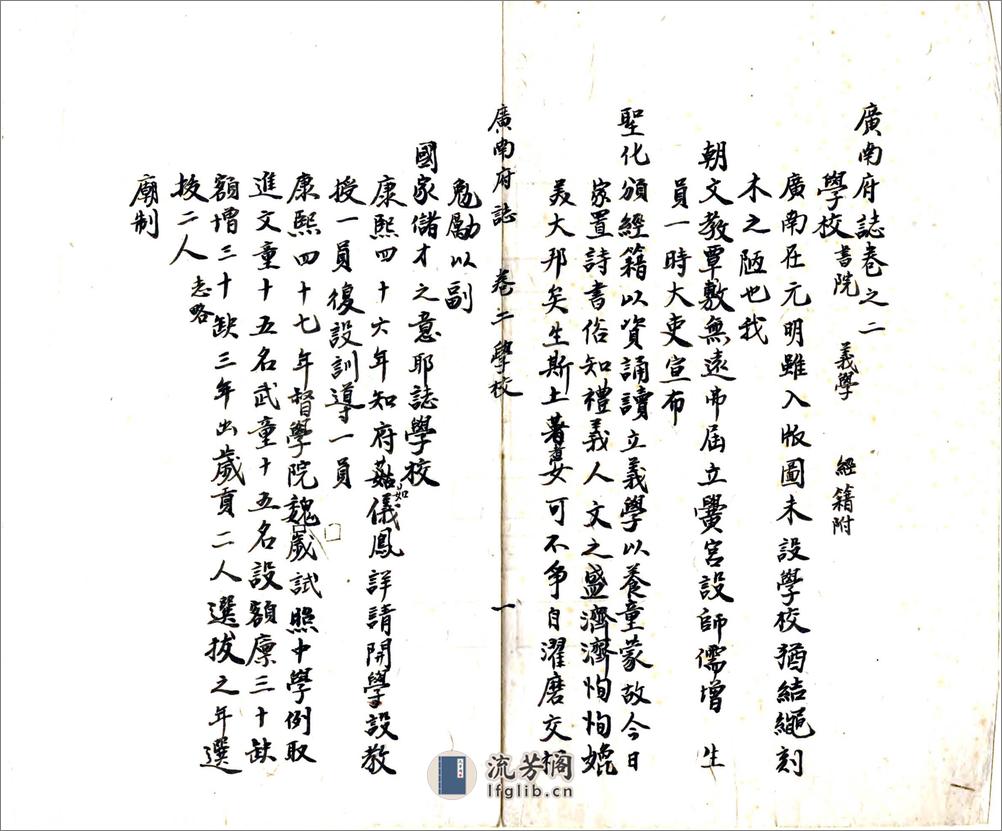 廣南府誌卷之二
學校 書院 義學 經籍附
廣南在元明雖入版圖未設學校猶結繩刻
木之陋也我
朝文教覃敷無遠弗屆立黌宮設師儒增 生
員一時大吏宣布
聖化頒經籍以資誦讀立義學以養童蒙故今日
家置詩書俗知禮義人文之盛濟濟恂恂媲
美大邦矣生斯土著 可不爭自濯磨交相
廣南府誌 卷二 學校 一
勉勵以副
國家儲才之意耶誌學校
康熙四十六年知府茹儀鳳詳請開學設教
授一員復設訓導一員
康熙四十七年督學院魏歲試照中學例取
進文童十五名武童十五名設額廩三十缺
額增三十缺三年出歲貢二人選拔之年選
拔二人 志略
廟制
流芳閣
lfglib.cn